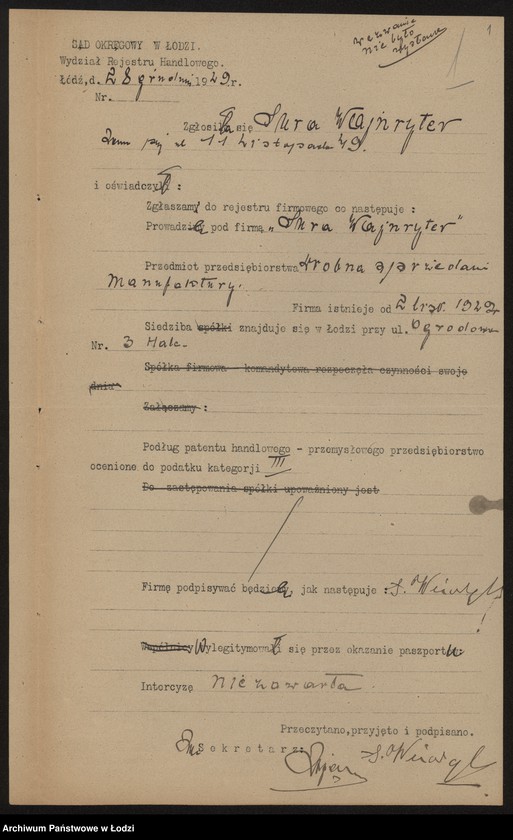 wezwanie
nie było
wysłane
1
SĄD OKRĘGOWY W ŁODZI.
Wydział Rejestru Handlowego.
Łódź, d. 28 grudnia 1929 r.
Nr.
Zgłosiła się Sura Wajnryter
zam przy ul 11 Listopada 49.
i oświadczył :
Zgłaszam do rejestru firmowego co następuje :
Prowadzę pod firmą „Sura Wajnryter"
Przedmiot przedsiębiorstwa drobna sprzedaż
manufaktury.
Firma istnieje od 1929 r
Siedziba spółki znajduje się w Łodzi przy ul. Ogrodowa
Nr. 3 Hale
Spółka firmowa - komandytowa rozpoczęła czynności swoje
dnia
Załączamy :
Podług patentu handlowego - przemysłowego przedsiębiorstwo
ocenione do podatku kategorji III
Do zastępowania spółki upoważniony jest
Firmę podpisywać będę jak następuje : S.
Wspólnicy Wylegitymował się przez okazanie paszportu
Intercyzę nie zawarła.
Przeczytano, przyjęto i podpisano.
Sekretarz:
S.
Archiwum Państwowe w Łodzi